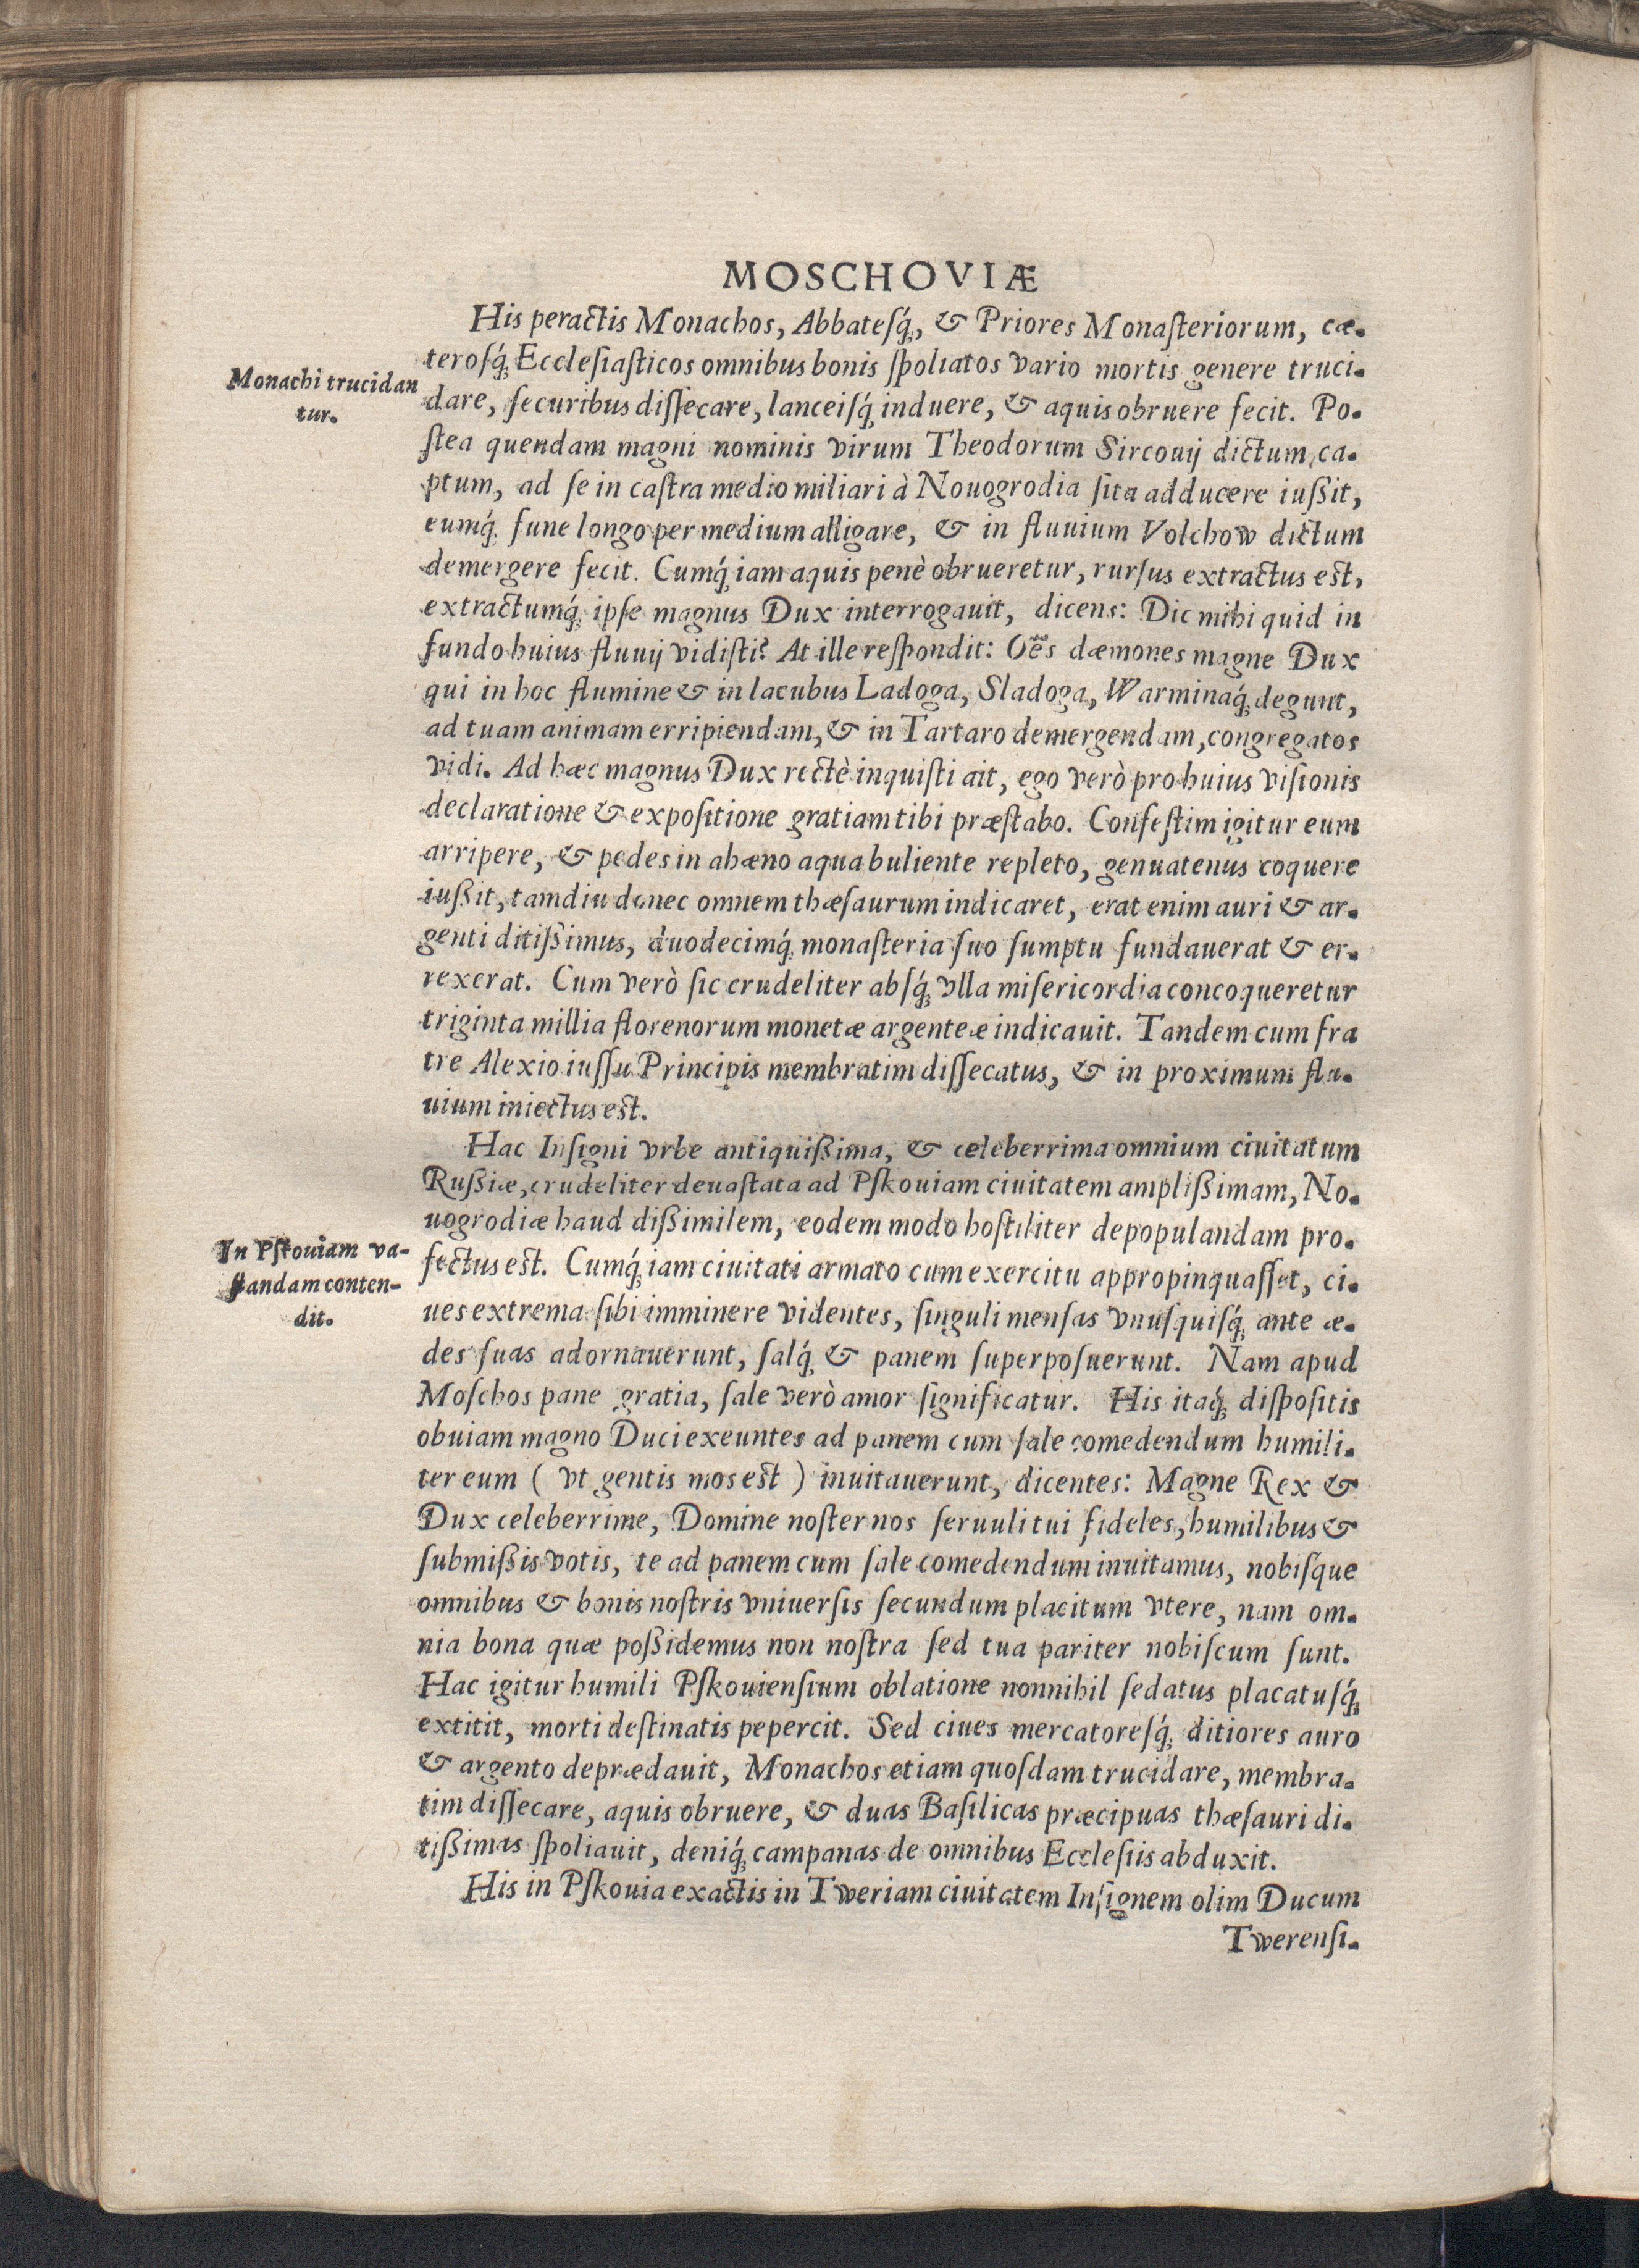 MOSCHOVIÆ
His peractis Monachos, Abbateſq́;, & Priores Monaſteriorum, cæ-
teroſq́; Eccleſiaſticos omnibus bonis ſpoliatos vario mortis genere truci-
Monachi trucidan
tur.
dare, ſecuribus diſſecare, lanceiſq́; induere, & aquis obruere fecit. Po-
ſtea quendam magni nominis virum Theodorum Sircouij dictum, ca-
ptum, ad ſe in caſtra medio miliari à Nouogrodia ſita adducere iußit,
eumq́; fune longo per medium alligare, & in fluuium Volchow dictum
demergere fecit. Cumq́; iam aquis penè obrueretur, rurſus extractus est,
extractumq́; ipſe magnus Dux interrogauit, dicens: Dic mihi quid in
fundo huius fluuij vidiſti? At ille reſpondit: Oẽs dæmones magne Dux
qui in hoc flumine & in lacubus Ladoga, Sladoga, Warminaq́; degunt,
ad tuam animam erripiendam, & in Tartaro demergendam, congregatos
vidi. Ad hæc magnus Dux rectè inquiſti ait, ego verò pro huius viſionis
declaratione & expoſitione gratiam tibi præſtabo. Confeſtim igitur eum
arripere, & pedes in ahæno aqua buliente repleto, genuatenus coquere
iußit, tamdiu donec omnem thæſaurum indicaret, erat enim auri & ar-
genti ditißimus, duodecimq́; monaſteria ſuo ſumptu fundauerat & er-
rexerat. Cum verò ſic crudeliter abſq́; vlla miſericordia concoqueretur
triginta millia florenorum monetæ argenteæ indicauit. Tandem cum fra
tre Alexio iuſſu Principis membratim diſſecatus, & in proximum flu-
uium iniectus est.
Hac Inſigni vrbe antiquißima, & celeberrima omnium ciuitatum
Rußiæ, crudeliter deuaſtata ad Pſkouiam ciuitatem amplißimam, No-
uogrodiæ haud dißimilem, eodem modo hoſtiliter depopulandam pro-
In Pſkouiam va-
ſtandam conten-
dit.
fectus est. Cumq́; iam ciuitati armato cum exercitu appropinquaſſet, ci-
ues extrema ſibi imminere videntes, ſinguli menſas vnuſquiſq́; ante æ-
des ſuas adornauerunt, ſalq́; & panem ſuperpoſuerunt. Nam apud
Moſchos pane gratia, ſale verò amor ſignificatur. His itaq́; diſpoſitis
obuiam magno Duci exeuntes ad panem cum ſale comedendum humili-
ter eum ( vt gentis mos est ) inuitauerunt, dicentes: Magne Rex &
Dux celeberrime, Domine noſter nos ſeruuli tui fideles, humilibus &
ſubmißis votis, te ad panem cum ſale comedendum inuitamus, nobiſque
omnibus & bonis noſtris vniuerſis ſecundum placitum vtere, nam om-
nia bona quæ poßidemus non noſtra ſed tua pariter nobiſcum ſunt.
Hac igitur humili Pſkouienſium oblatione nonnihil ſedatus placatuſq́;
extitit, morti deſtinatis pepercit. Sed ciues mercatoreſq́; ditiores auro
& argento deprædauit, Monachos etiam quoſdam trucidare, membra-
tim diſſecare, aquis obruere, & duas Baſilicas præcipuas thæſauri di-
tißimas ſpoliauit, deniq́; campanas de omnibus Eccleſiis abduxit.
His in Pſkouia exactis in Tweriam ciuitatem Inſignem olim Ducum
Twerenſi-